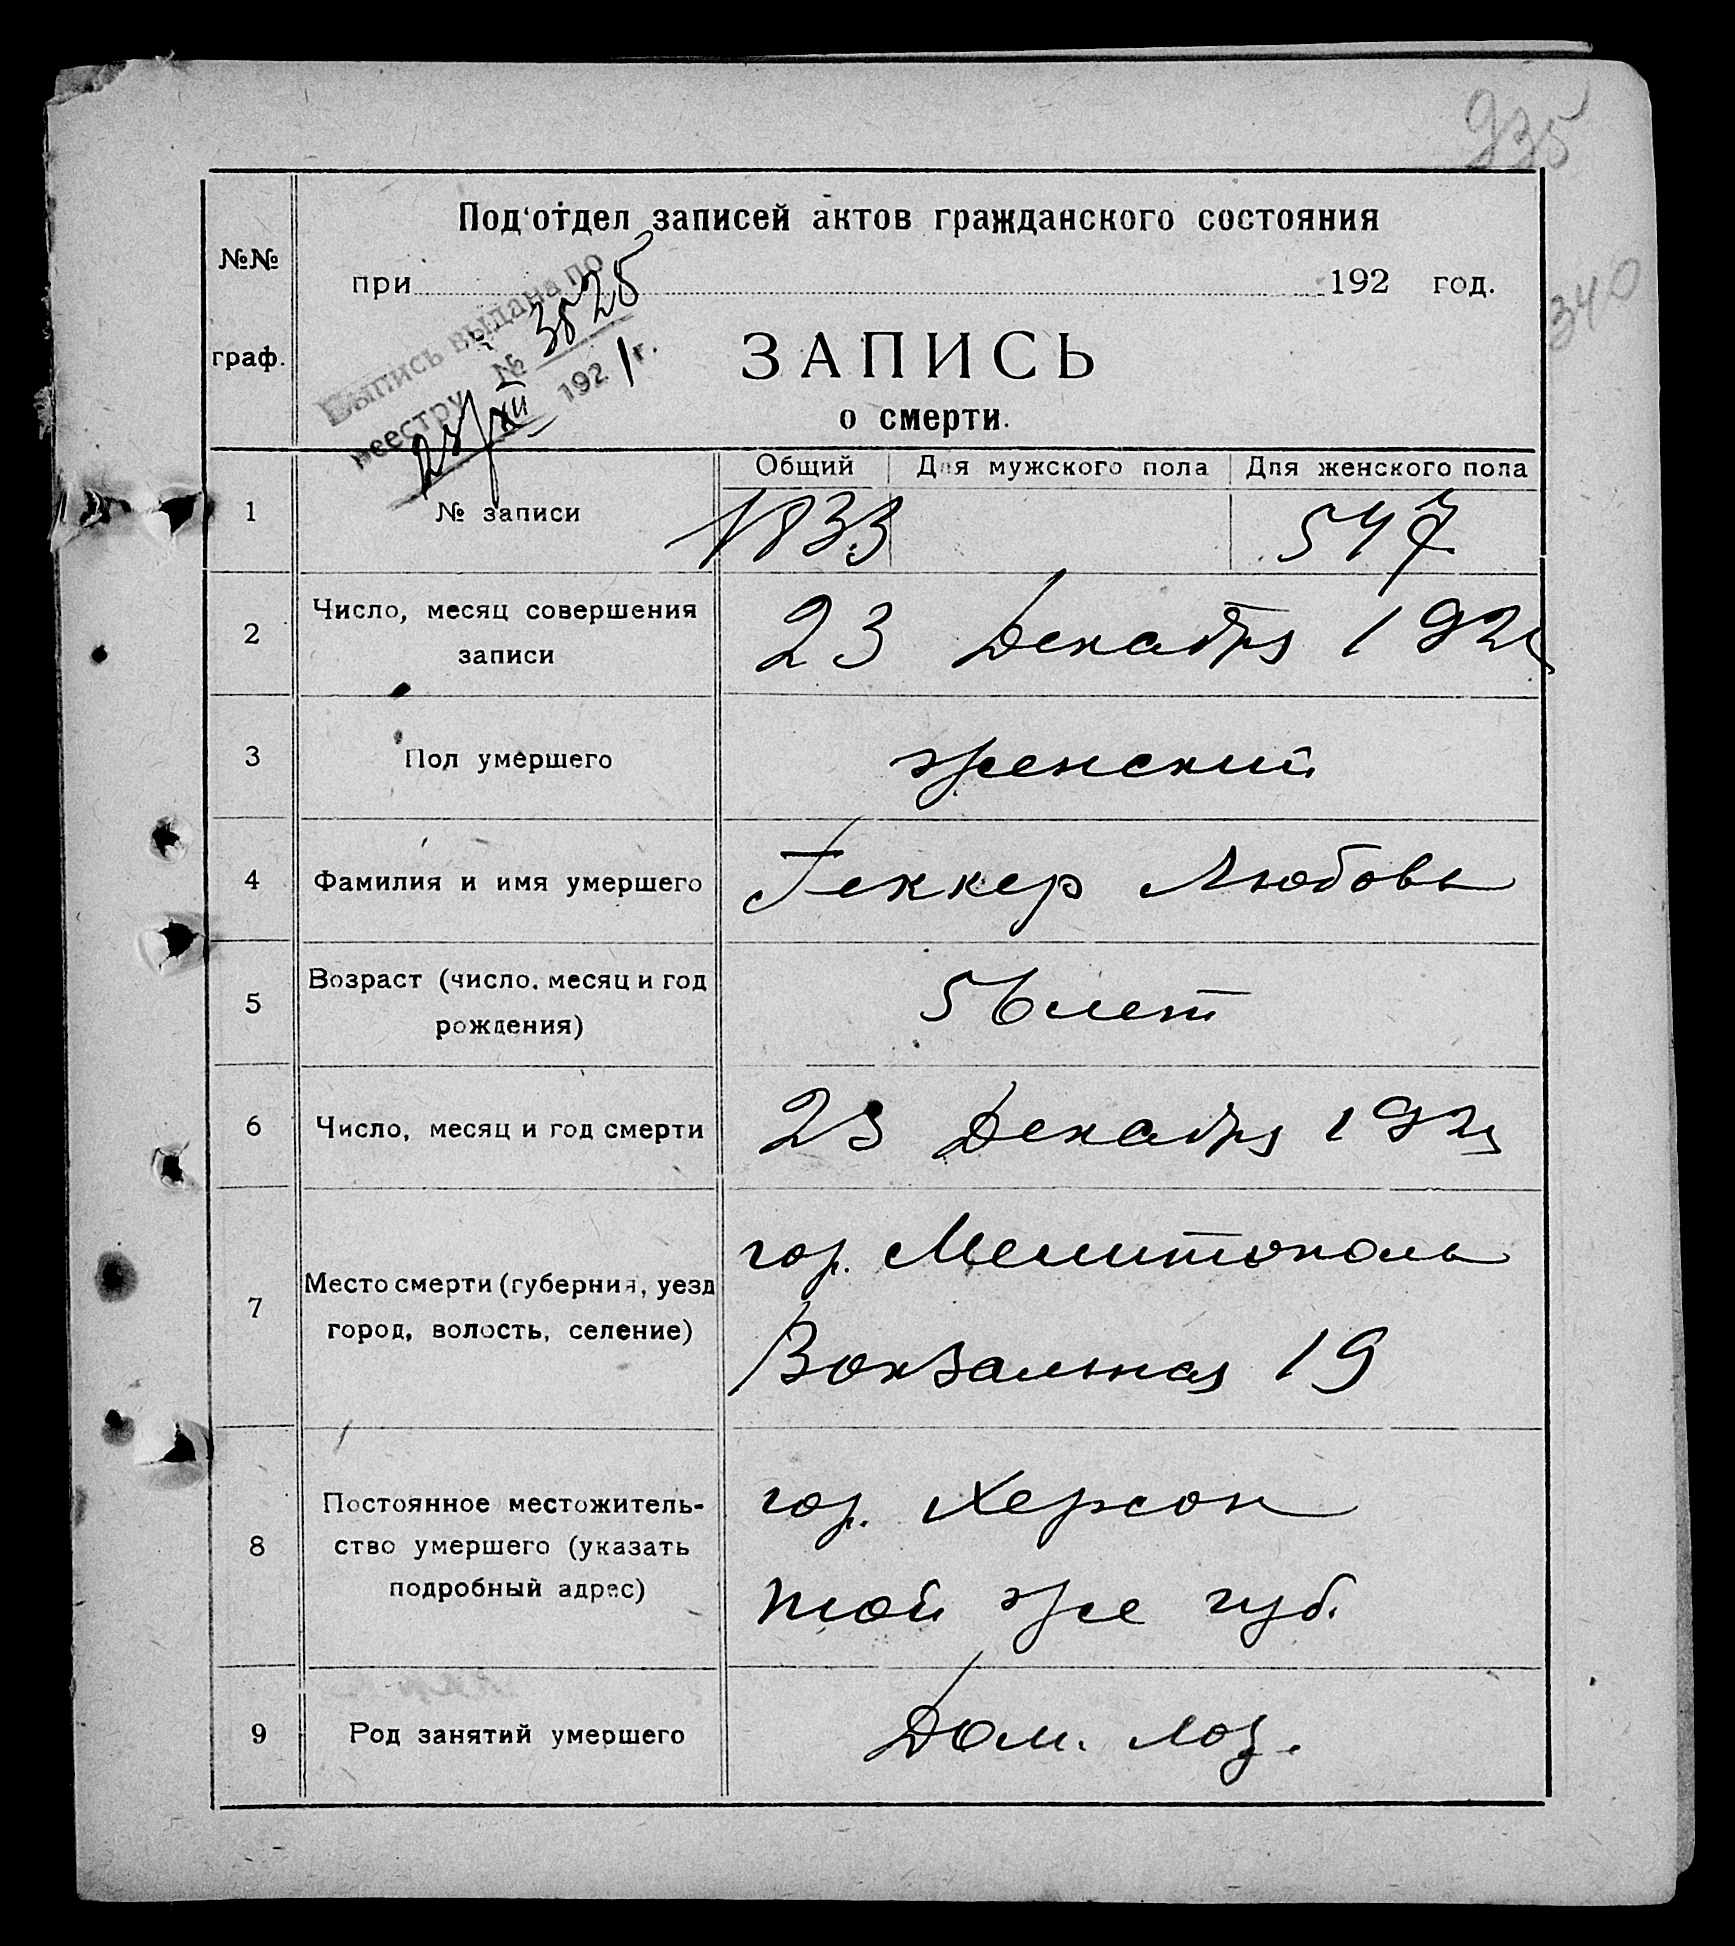 935
Под'отдел записей актов гражданского состояния
№№
граф.
при 192 год.
340
Выпись выдана по
реестру № 3825
23/XII 1921 г.
ЗАПИСЬ
о смерти.
Общий Для мужского пола Для женского пола
1 № записи 1833 547
2 Число, месяц совершения
записи
23 Декабря 1921
3 Пол умершего женский
4 Фамилия и имя умершего Геккер Любовь
5 Возраст (число, месяц и год
рождения)
56 лет
6 Число, месяц и год смерти 23 Декабря 1921
7 Место смерти (губерния, уезд
город, волость, селение)
гор. Мелитополь
Вокзальная 19
8 Постоянное местожитель-
ство умершего (указать
подробный адрес)
гор. Херсон
той же губ.
9 Род занятий умершего Дом. хоз.